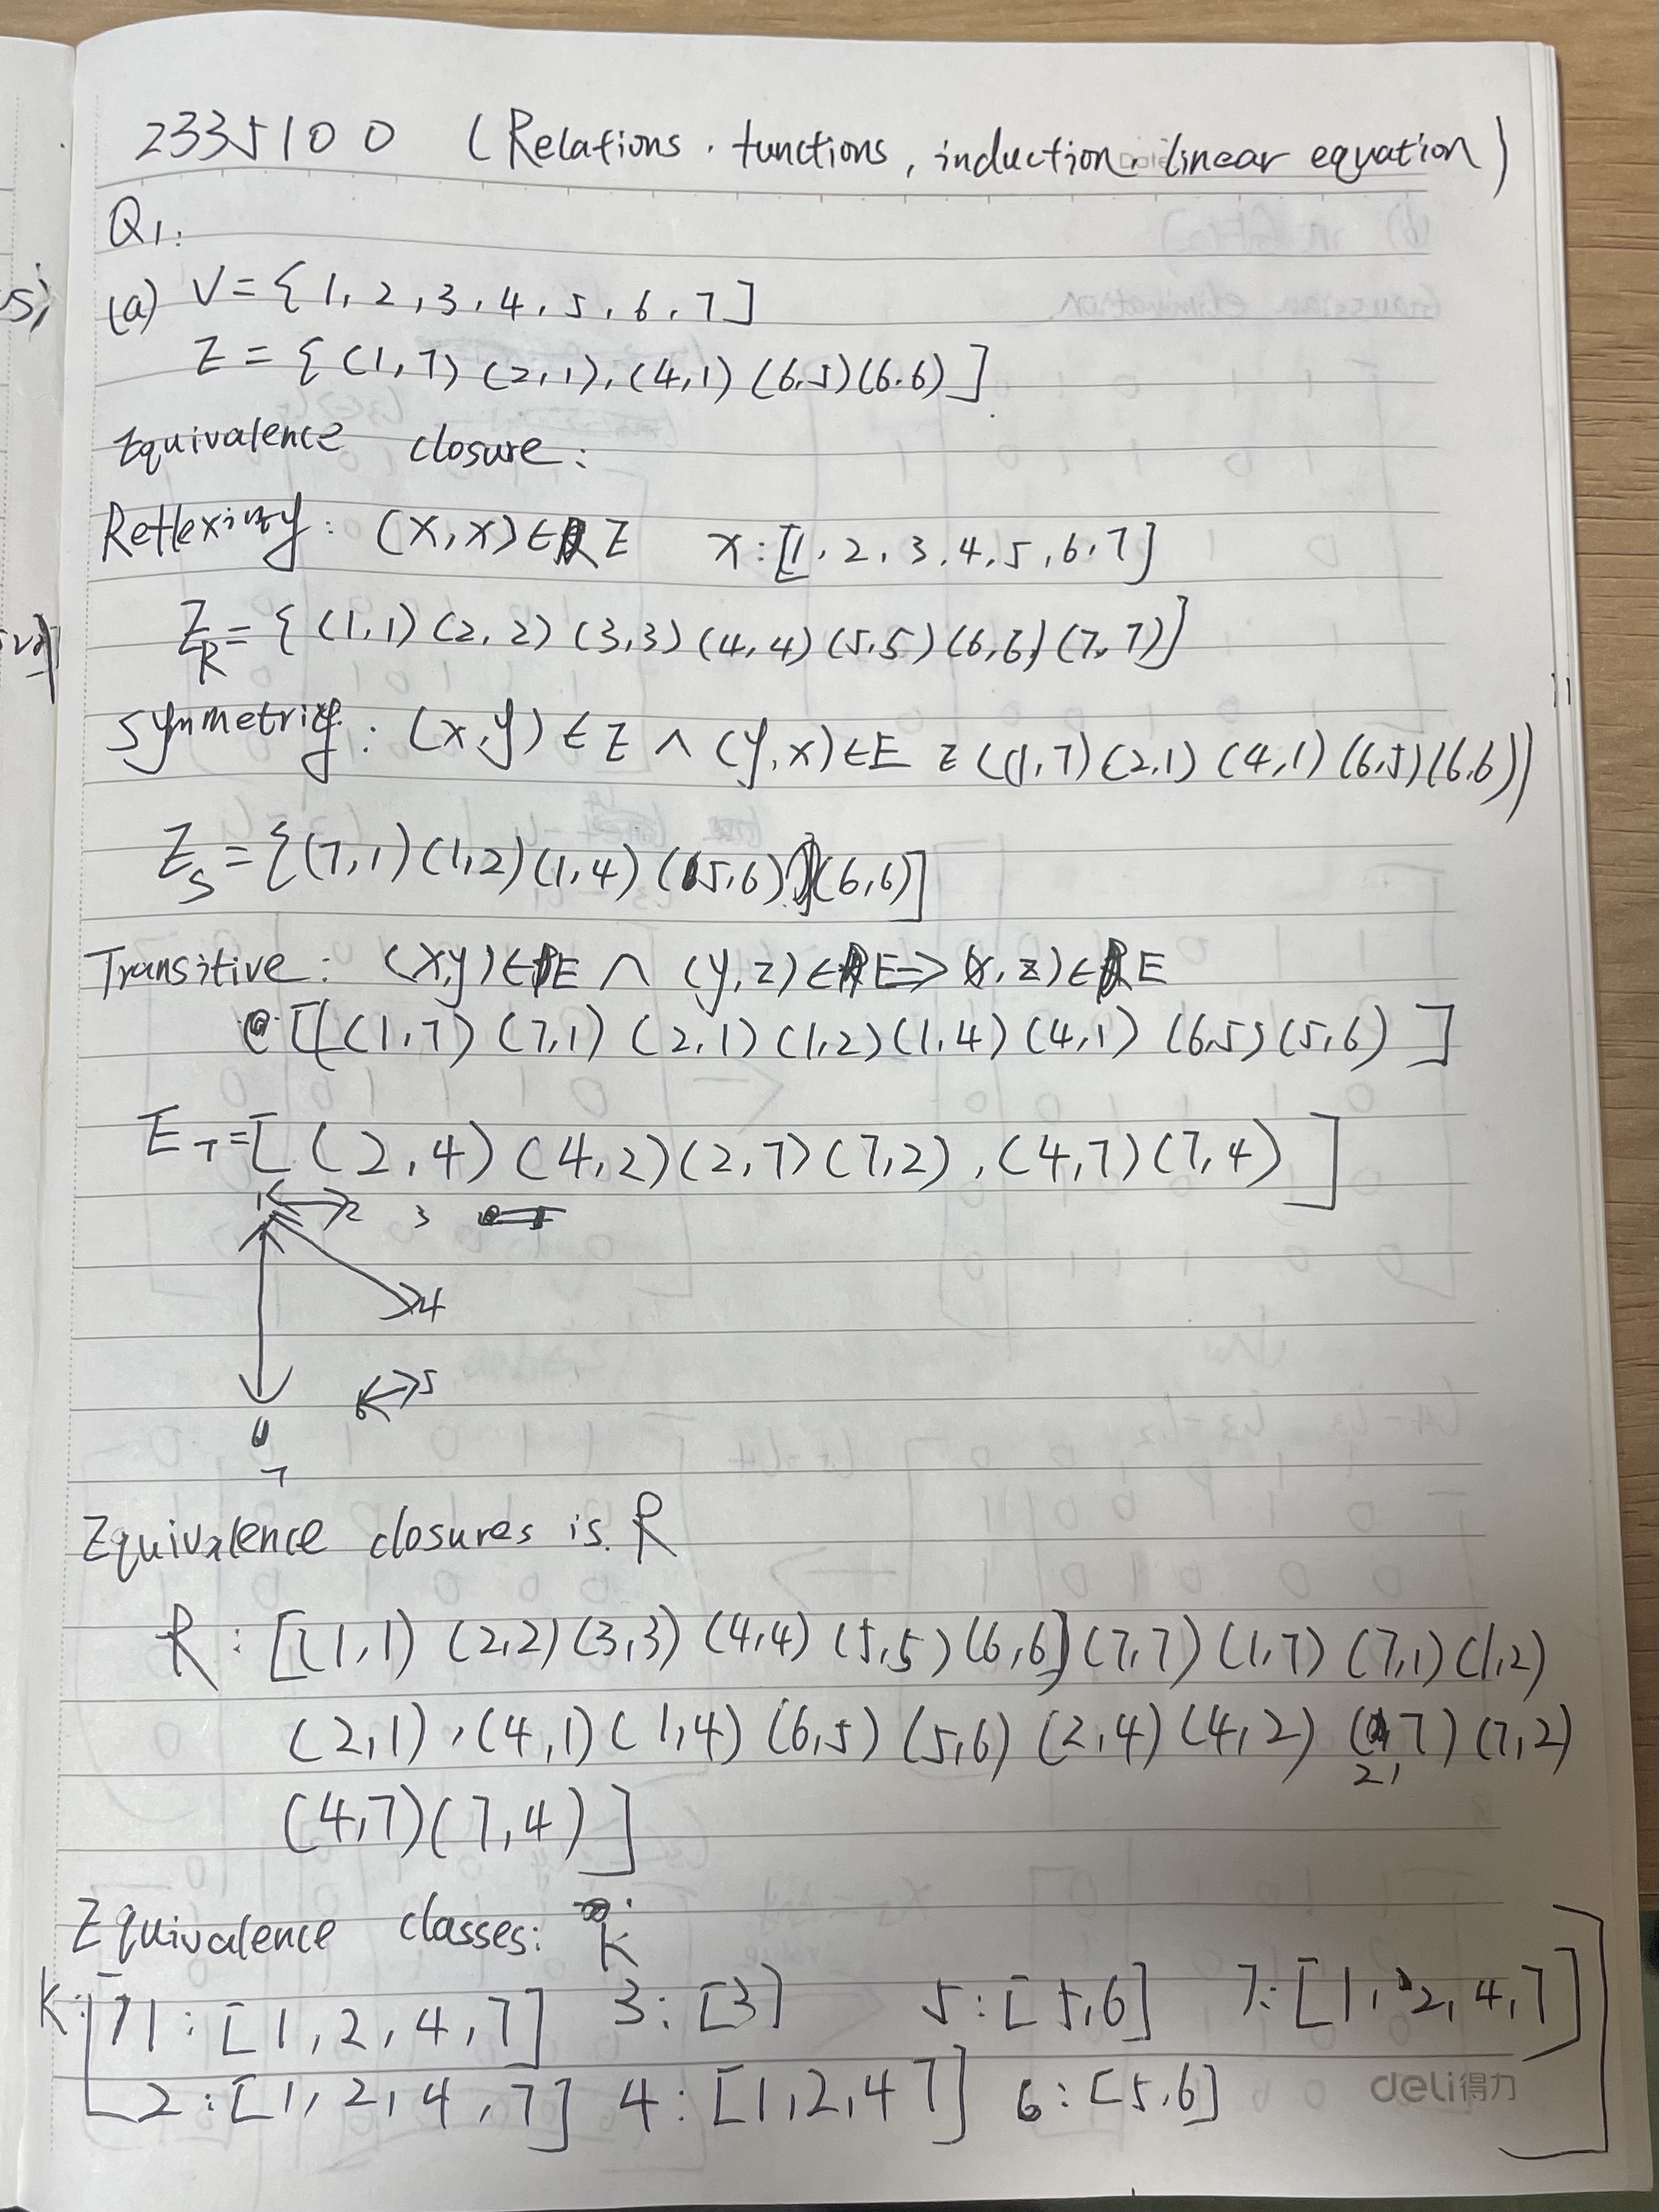 2335100 (Relations, functions, induction, linear equation)
Q1:
(a) V = { 1, 2, 3, 4, 5, 6, 7 ]
E = { (1,7) (2,1), (4,1) (6,5) (6,6) ]
Equivalence closure:
Reflexivity: (x,x) ∈ E x: [1, 2, 3, 4, 5, 6, 7]
E_R = { (1,1) (2,2) (3,3) (4,4) (5,5) (6,6) (7,7)]
Symmetricity: (x,y) ∈ E ∧ (y,x) ∈ E E ((1,7) (2,1) (4,1) (6,5) (6,6))
E_S = {(7,1) (1,2) (1,4) (5,6) (6,6)]
Transitive: (x,y) ∈ E ∧ (y,z) ∈ E => (x,z) ∈ E
[(1,7) (7,1) (2,1) (1,2) (1,4) (4,1) (6,5) (5,6) ]
E_T = [ (2,4) (4,2) (2,7) (7,2), (4,7) (7,4) ]
1 2 3
4
6 5
7
Equivalence closures is R
R: [(1,1) (2,2) (3,3) (4,4) (5,5) (6,6) (7,7) (1,7) (7,1) (1,2)
(2,1), (4,1) (1,4) (6,5) (5,6) (2,4) (4,2) (2,7) (7,2)
(4,7) (7,4) ]
Equivalence classes: K
K: [1: [1, 2, 4, 7] 3: [3] 5: [5,6] 7: [1, 2, 4, 7]
2: [1, 2, 4, 7] 4: [1,2,4 7] 6: [5,6] ]
deli得力